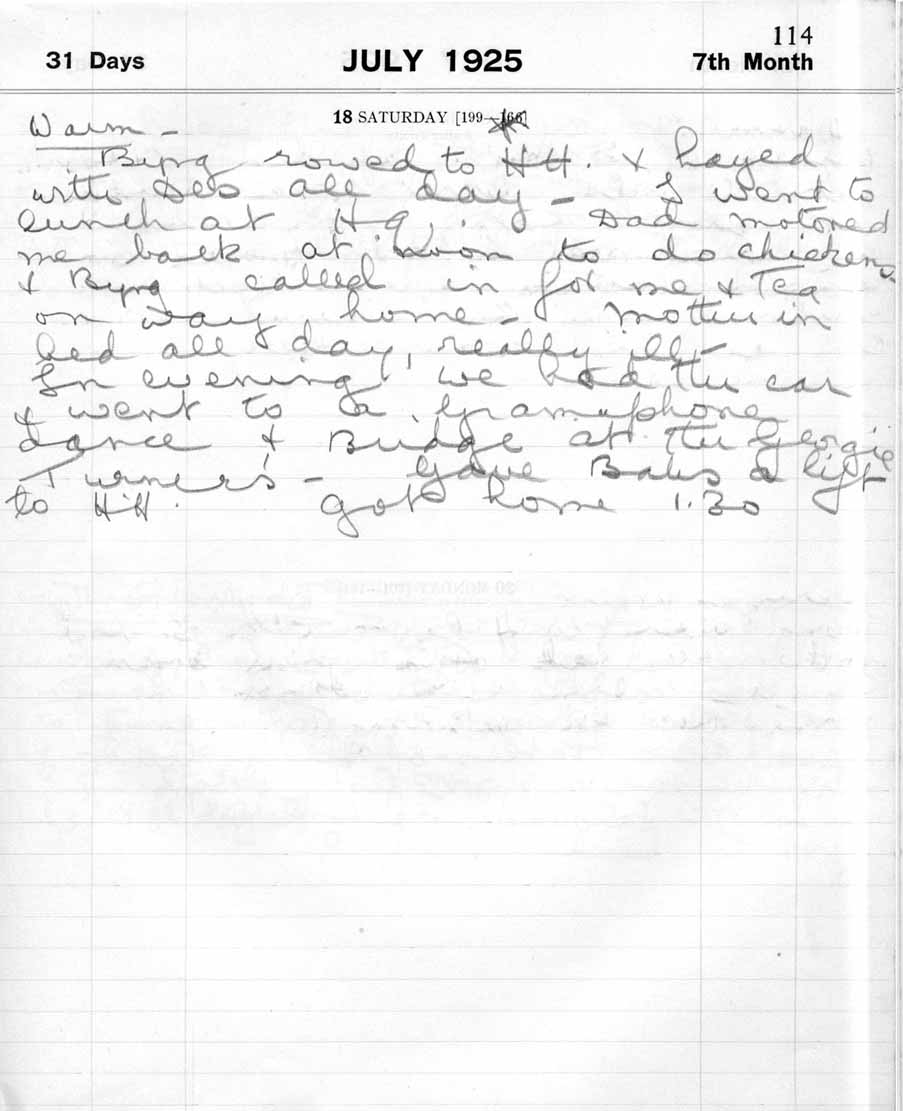 114
31 Days JULY 1925 7th Month
18 SATURDAY [199—166]
Warm -
Byng rowed to HH. & hayed
with Des all day - I went to
lunch at HQ. Dad motored
me back at noon to do chickens
& Byng called in for me & Tea
on way home - Mother in
bed all day, really ill -
In evening we had the car
& went to a gramophone
dance & Bridge at the Georgie
Turner's - Gave a lift
to HH. got home 1.30